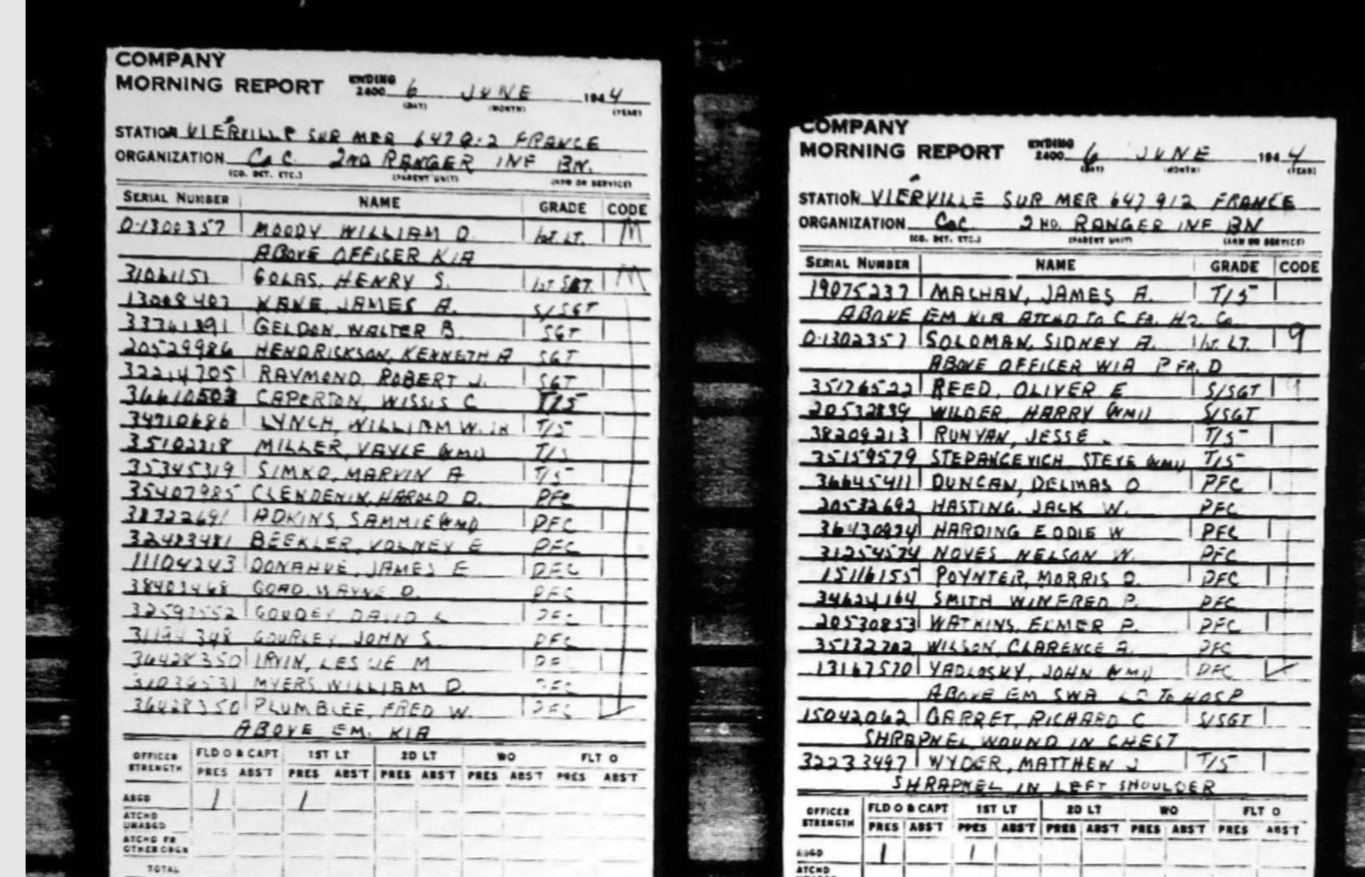 COMPANY
MORNING REPORT ENDING 2400 6 JUNE 1944
(DAY) (MONTH) (YEAR)
STATION VIERVILLE SUR MER 647912 FRANCE
ORGANIZATION Co C. 2ND RANGER INF BN.
(CO. DET. ETC.) (PARENT UNIT) (ARM OR SERVICE)
SERIAL NUMBER NAME GRADE CODE
O-1300357 MOODY WILLIAM D. 1st LT. M
ABOVE OFFICER KIA
31061151 GOLAS, HENRY S. 1st SGT. M
13008407 KANE, JAMES A. S/SGT
33761391 GELDON, WALTER B. SGT
20529986 HENDRICKSON, KENNETH A SGT
32214705 RAYMOND, ROBERT J. SGT
36610503 CAPERTON, WISSIS C T/5
34710686 LYNCH, WILLIAM W. JR T/5
35102218 MILLER, VAYLE (NMI) T/5
35345319 SIMKO, MARVIN A T/5
35407985 CLENDENIN, HAROLD D. PFC
38322691 ADKINS, SAMMIE (NMI) PFC
32483481 BEEKLER, VOLNEY E PFC
11104243 DONAHUE, JAMES E PFC
38403468 GOAD, WAYNE D. PFC
32597552 GOUDEY DAVID L PFC
31194348 GOURLEY, JOHN S. PFC
36428350 IRVIN, LESLIE M PFC
MYERS WILLIAM D. PFC
36428350 PLUMBLEE, FRED W. PFC
ABOVE EM. KIA
OFFICER STRENGTH FLD O & CAPT 1ST LT 2D LT WO FLT O
PRES ABS'T PRES ABS'T PRES ABS'T PRES ABS'T PRES ABS'T
ASGD 1 1
ATCHD UNASGD
ATCHD FR OTHER ORGN
TOTAL
COMPANY
MORNING REPORT ENDING 2400 6 JUNE 1944
(DAY) (MONTH) (YEAR)
STATION VIERVILLE SUR MER 647912 FRANCE
ORGANIZATION CoC. 2ND. RANGER INF BN
(CO. DET. ETC.) (PARENT UNIT) (ARM OR SERVICE)
SERIAL NUMBER NAME GRADE CODE
19075237 MACHAN, JAMES A. T/5
ABOVE EM KIA ATCHD TO C FR. HQ. Co.
O-1302357 SOLOMAN, SIDNEY A. 1st LT. 9
ABOVE OFFICER WIA P FR. D
35176522 REED, OLIVER E S/SGT
20532839 WILDER, HARRY (NMI) S/SGT
38209213 RUNYAN, JESSE T/5
35159579 STEPANCEVICH, STEVE (NMI) T/5
36645411 DUNCAN, DELMAS O PFC
20532692 HASTING, JACK W. PFC
36430934 HARDING EDDIE W PFC
31254574 NOYES NELSON W. PFC
15116155 POYNTER, MORRIS D. PFC
34624164 SMITH WINFRED P. PFC
20530853 WATKINS, ELMER P. PFC
35132702 WILSON, CLARENCE A. PFC
13167570 YADLOSKY, JOHN (NMI) PFC
ABOVE EM SWA LD TO HOSP
15042062 GARRET, RICHARD C S/SGT
SHRAPNEL WOUND IN CHEST
32233497 WYDER, MATTHEW J T/5
SHRAPNEL IN LEFT SHOULDER
OFFICER STRENGTH FLD O & CAPT 1ST LT 2D LT WO FLT O
PRES ABS'T PRES ABS'T PRES ABS'T PRES ABS'T PRES ABS'T
ASGD 1 1
ATCHD